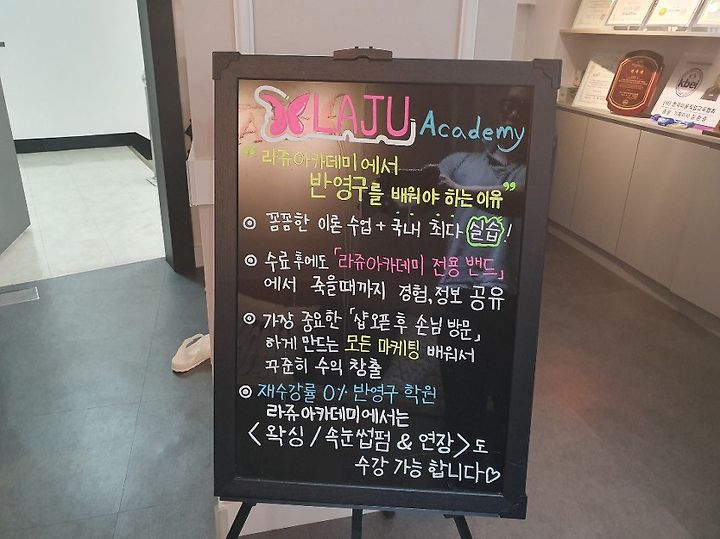 LAJU Academy
"라쥬아카데미에서
반영구를 배워야 하는 이유"
꼼꼼한 이론 수업 + 국내 최다 실습!
수료후에도 「라쥬아카데미 전용 밴드」
에서 죽을때까지 경험, 정보 공유
가장 중요한 「샵오픈 후 손님 방문」
하게 만드는 모든 마케팅 배워서
꾸준히 수익 창출
재수강률 0% 반영구 학원
라쥬아카데미에서는
<왁싱 / 속눈썹펌 & 연장>도
수강 가능합니다♡
kbei